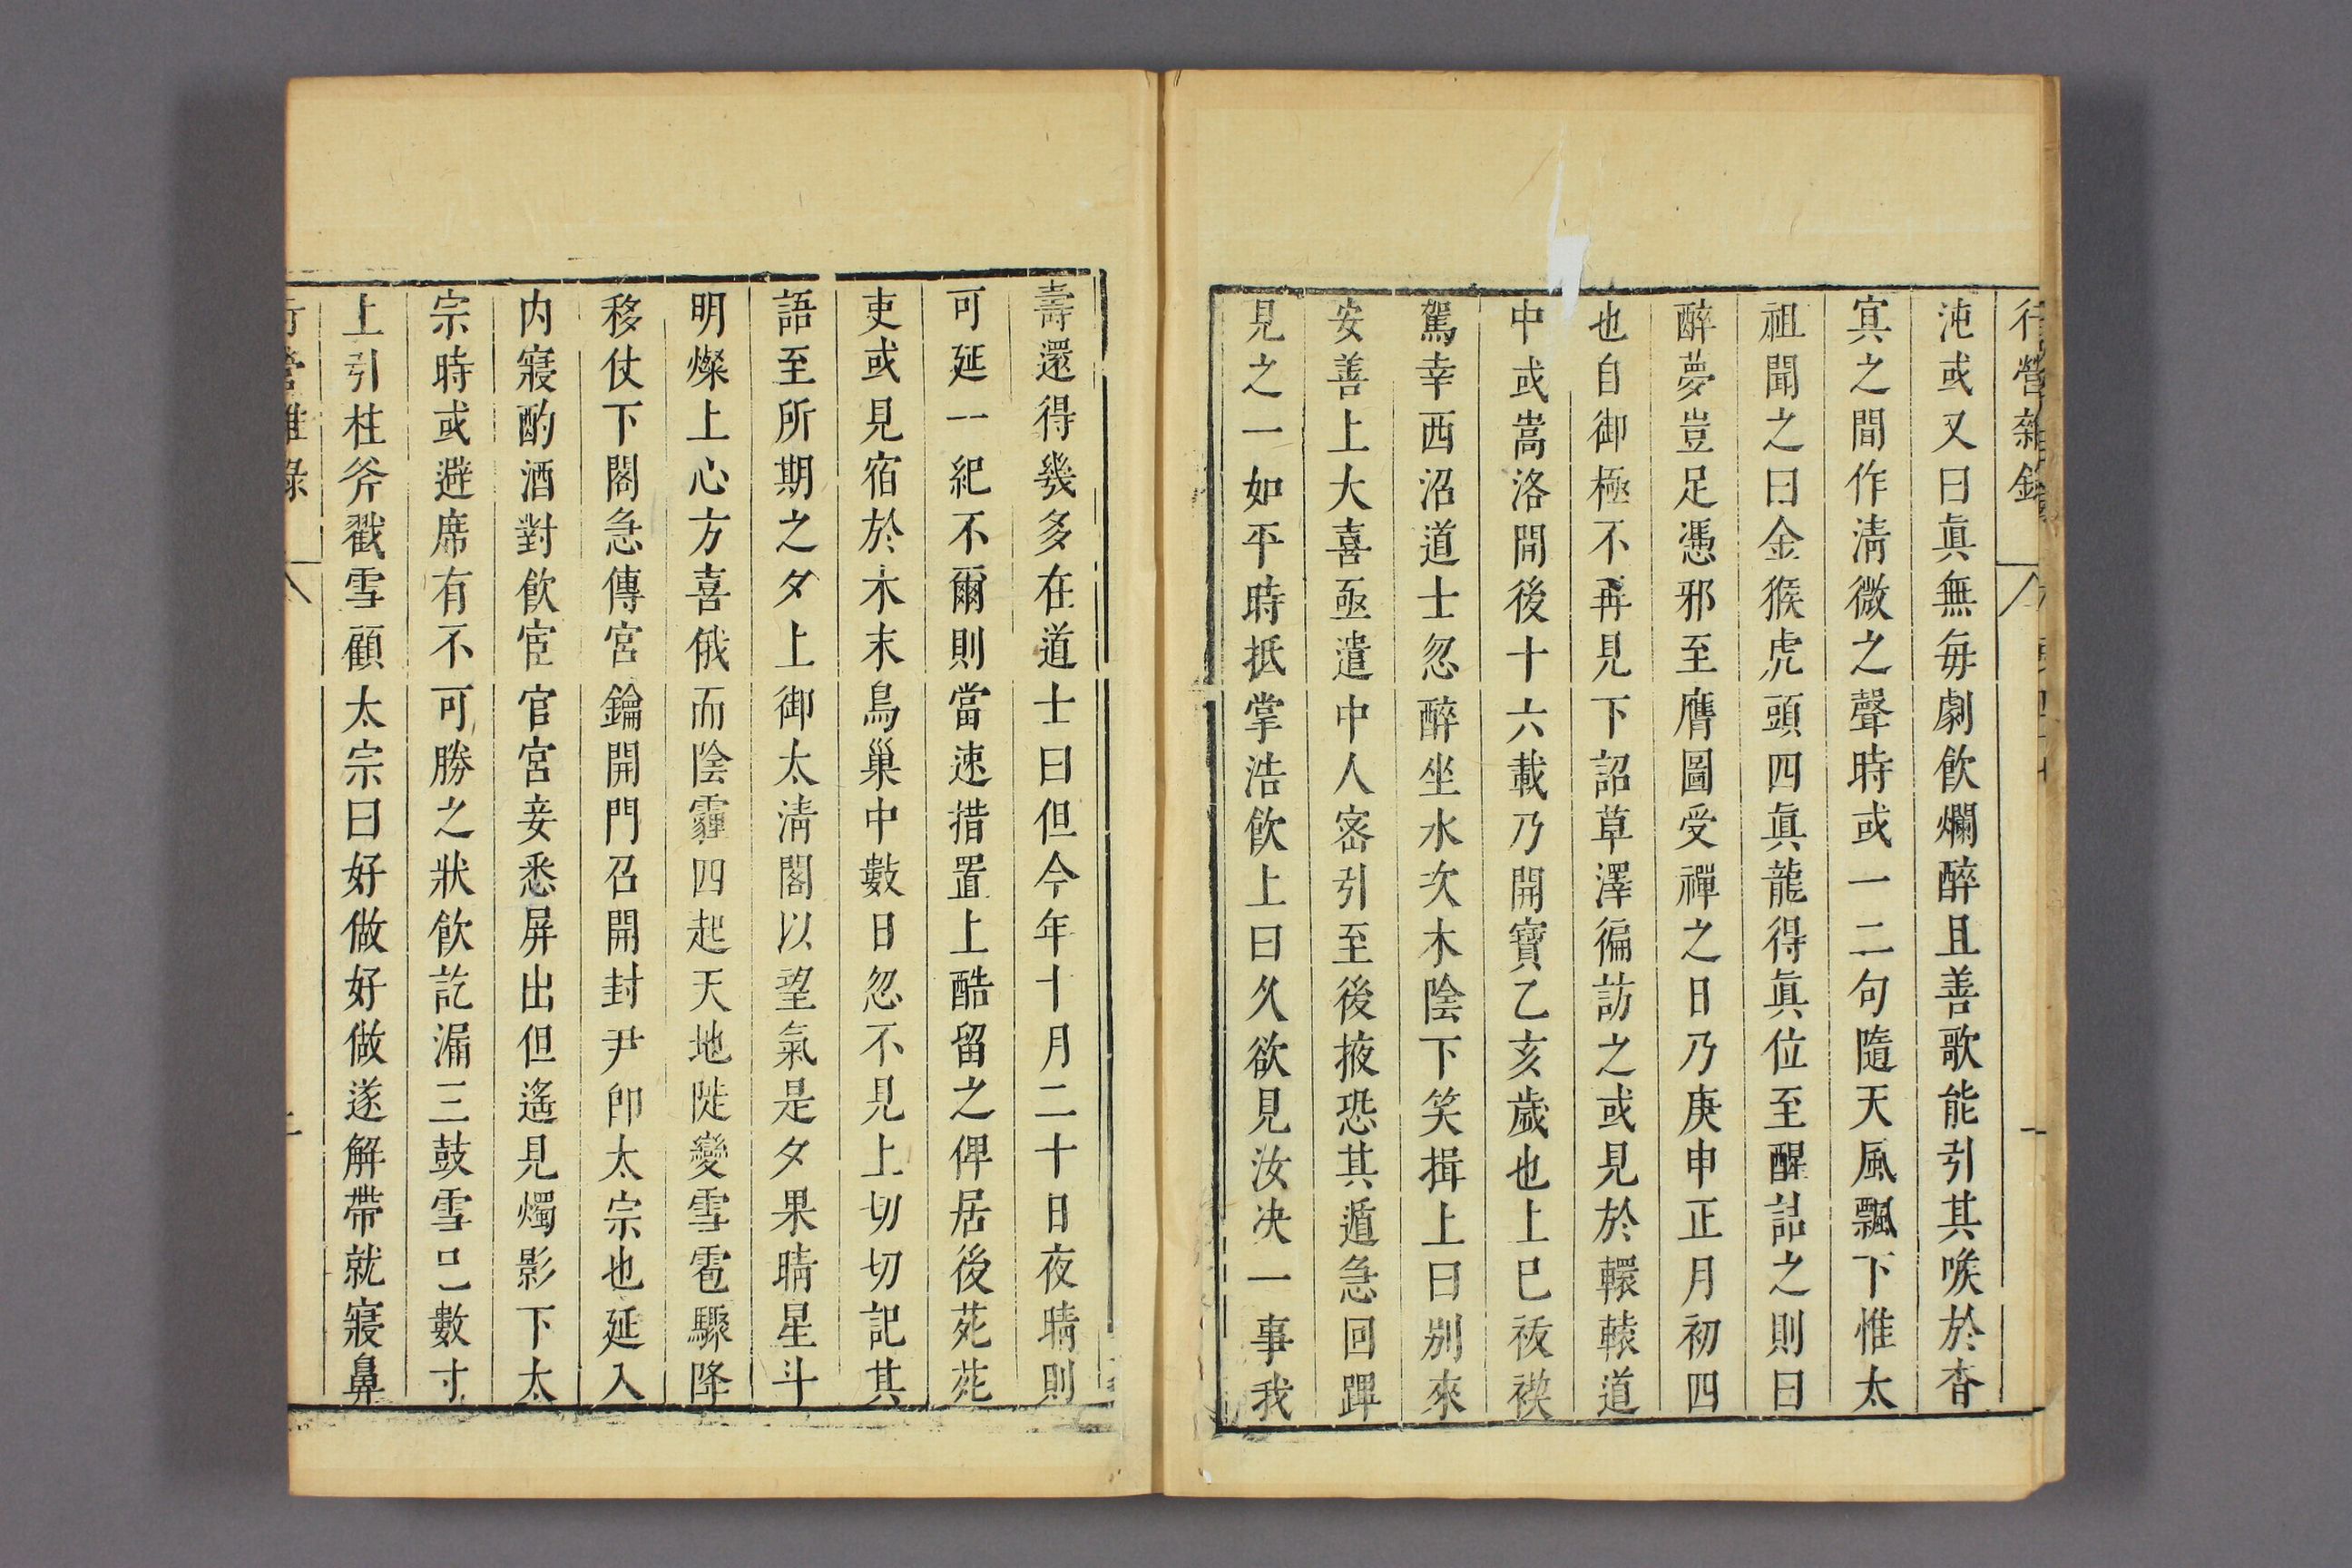 行營雜錄
沌或又曰眞無每劇飲爛醉且善歌能引其喉於杳
㝠之間作淸微之聲時或一二句隨天風飄下惟太
祖聞之曰金猴虎頭四眞龍得眞位至醒詰之則曰
醉夢豈足憑邪至膺圖受禪之日乃庚申正月初四
也自御極不再見下詔草澤徧訪之或見於轘轅道
中或嵩洛間後十六載乃開寶乙亥歲也上巳祓禊
駕幸西沼道士忽醉坐水次木陰下笑揖上曰別來
安善上大喜亟遣中人宻引至後掖恐其遁急回蹕
見之一如平時抵掌浩飲上曰久欲見汝决一事我
壽還得幾多在道士曰但今年十月二十日夜晴則
可延一紀不爾則當速措置上酷留之俾居後苑苑
吏或見宿於木末鳥巢中數日忽不見上切切記其
語至所期之夕上御太淸閣以望氣是夕果晴星斗
明燦上心方喜俄而陰霾四起天地陡變雪雹驟降
移仗下閣急傳宮鑰開門召開封尹卽太宗也延入
内寢酌酒對飲宦官宮妾悉屏出但遙見燭影下太
宗時或避席有不可勝之狀飲訖漏三鼓雪已數寸
上引柱斧戳雪顧太宗曰好做好做遂解帶就寢鼻
行營雜錄